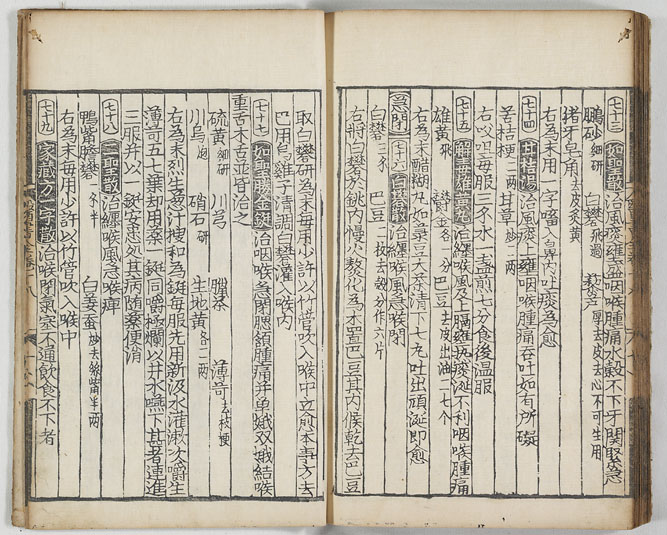 七十三 如聖散 治風痰壅盛咽喉腫痛水穀不下牙關緊急
鵬砂 細研 白礬 飛過 藜芦 厚去皮去心不可生用
猪牙皂角 去皮炙黃
右為末用一字㗜入鼻內吐痰為愈
七十四 甘桔湯 治風痰上壅咽喉腫痛吞吐如有所礙
苦桔梗 二兩 甘草 炒二兩
右以㕮每服三錢水一盞煎七分食後溫服
七十五 解毒雄黃丸 治纏喉風及上膈壅熱痰涎不利咽喉腫痛
雄黃 飛 鬱金 各一分 巴豆 去皮出油二七个
右為末醋糊丸如菉豆大茶清下七丸吐出頑涎即愈
急閉 七十六 白礬散 治纏喉風急喉閉
白礬 三錢 巴豆 二枚去殼分作六片
右將白礬於銚內慢火熬化為水置巴豆其內候乾去巴豆
取白礬研為末每用少許以竹管吹入喉中立愈本事方去
巴用烏雞子清調白礬灌入喉內
七十七 如聖勝金鋌 治咽喉急閉腮頷腫痛并單蛾双蛾結喉
重舌木舌並皆治之
硫黃 細研 川芎 臈茶 薄苛 去枝梗
川烏 炮 硝石 研 生地黃 各二兩
右為末烈生葱汁搜和為鋌每服先用新汲水灌漱次嚼生
薄苛五七葉却用藥一鋌同嚼極爛以井水嚥下甚者連進
三服并以一鋌安患処其病随藥便消
七十八 二聖散 治纏喉風急喉痺
鴨觜膽礬 二錢半 白姜蚕 炒去絲觜半兩
右為末每用少許以竹管吹入喉中
七十九 家藏方一字散 治喉閉氣塞不通飲食不下者